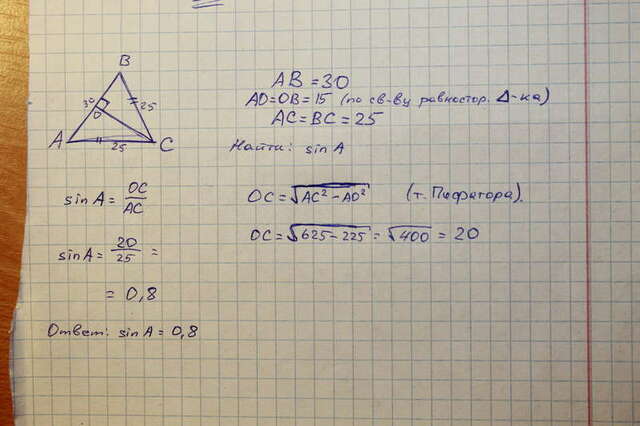 B
30
O
25
A
25
C
AB = 30
AO = OB = 15 (по св-ву равностор. Δ-ка)
AC = BC = 25
Найти: sin A
sin A = OC/AC
OC = √AC² − AO² (т. Пифагора).
sin A = 20/25 =
OC = √625 − 225 = √400 = 20
= 0,8
Ответ: sin A = 0,8